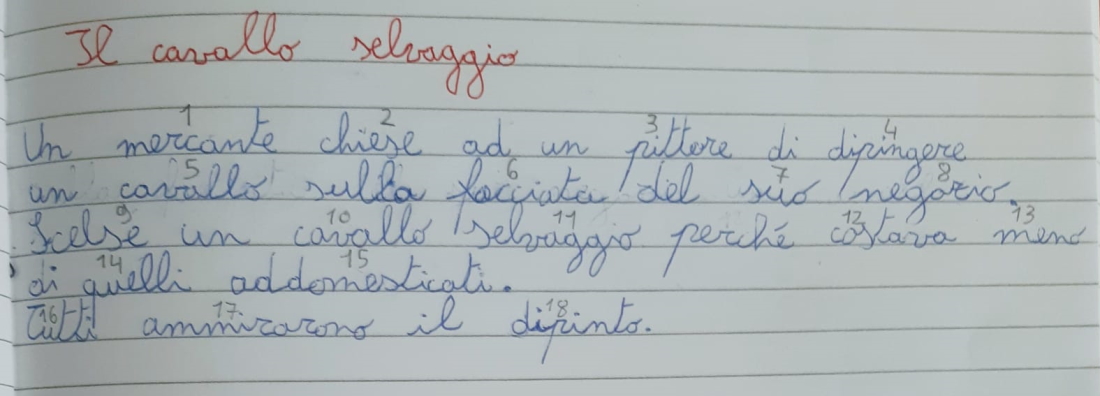 Il cavallo selvaggio
1 2 3 4
Un mercante chiese ad un pittore di dipingere
5 6 7 8
un cavallo sulla facciata del suo negozio.
9 10 11 12 13
Scelse un cavallo selvaggio perché costava meno
14 15
di quelli addomesticati.
16 17 18
Tutti ammirarono il dipinto.